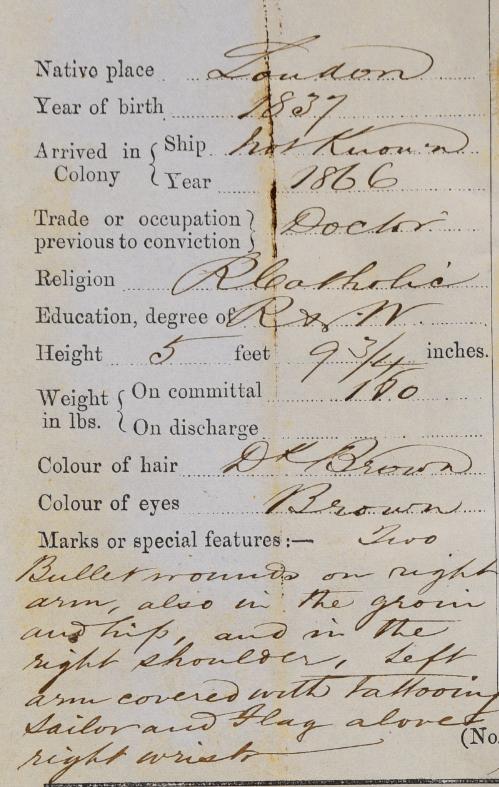 Native place London
Year of birth 1837
Arrived in Colony { Ship Not Known
Year 1866
Trade or occupation previous to conviction } Doctor
Religion R Catholic
Education, degree of R & W
Height 5 feet 9 3/4 inches.
Weight in lbs. { On committal 160
On discharge
Colour of hair Dk Brown
Colour of eyes Brown
Marks or special features:— Two
Bullet wounds on right
arm, also in the groin
and hip, and in the
right shoulder, Left
arm covered with tattooing
Sailor and Flag above
right wrist
(No.